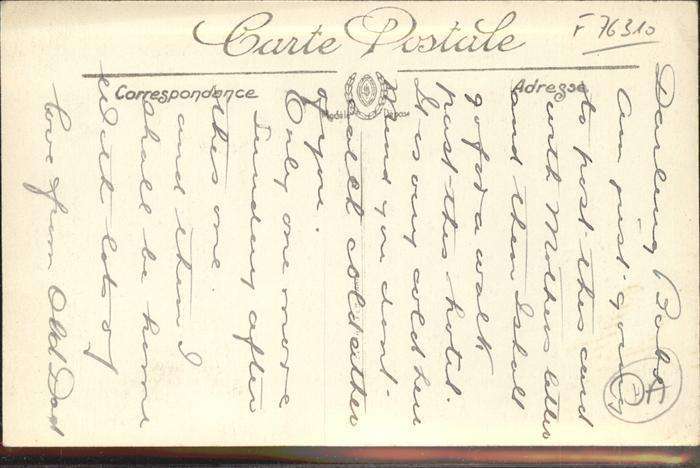 Carte Postale
F 76310
Correspondance
Adresse
Modèle
Darling Bobs
Am just going
to post this card
with Mothers letter
and then I shall
go for a walk
past this hotel.
It is very cold here
mind you dont
catch cold either
of you.
Only one more
Sunday after
this one
and then I
shall be home
with lots of
love from Old Dad